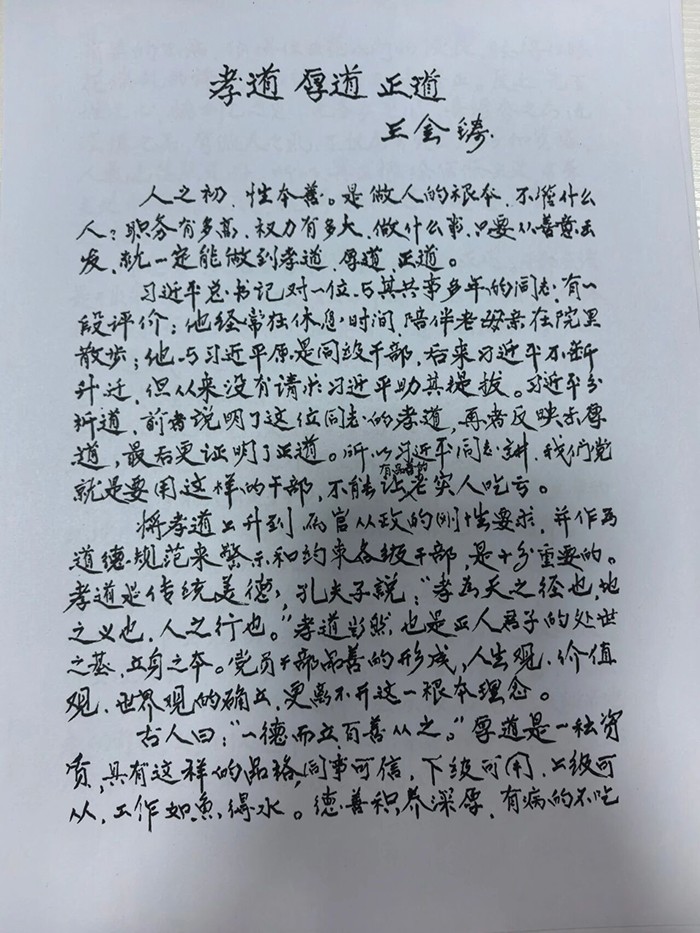 孝道 厚道 正道
王金铸.
人之初,性本善。是做人的根本,不管什么
人?职务有多高,权力有多大,做什么事,只要从善意出
发,就一定能做到孝道、厚道、正道。
习近平总书记对一位与其共事多年的同志,有一
段评价:他经常在休息时间,陪伴老母亲在院里
散步;他与习近平原是同级干部,后来习近平不断
升迁,但从来没有请求习近平助其提拔。习近平分
析道,前者说明了这位同志的孝道,再者反映示厚
道,最后更证明了正道。所以习近平同志讲,我们党
有品者的
就是要用这样的干部,不能让老实人吃亏。
将孝道上升到为官从政的刚性要求,并作为
道德规范来警示和约束各级干部,是十分重要的。
孝道是传统美德,孔夫子説:"孝为天之径也,地
之义也,人之行也。"孝道当然,也是正人君子的处世
之基,立身之本。党员干部品善的形成,人生观、价值
观、世界观的确立,更离不开这一根本理念。
古人曰:"一德而立百善从之。"厚道是一种资
质,具有这样的品格,同事可信,下级可用,上级可
从,工作如魚得水。德善积养深厚,有病的不吃